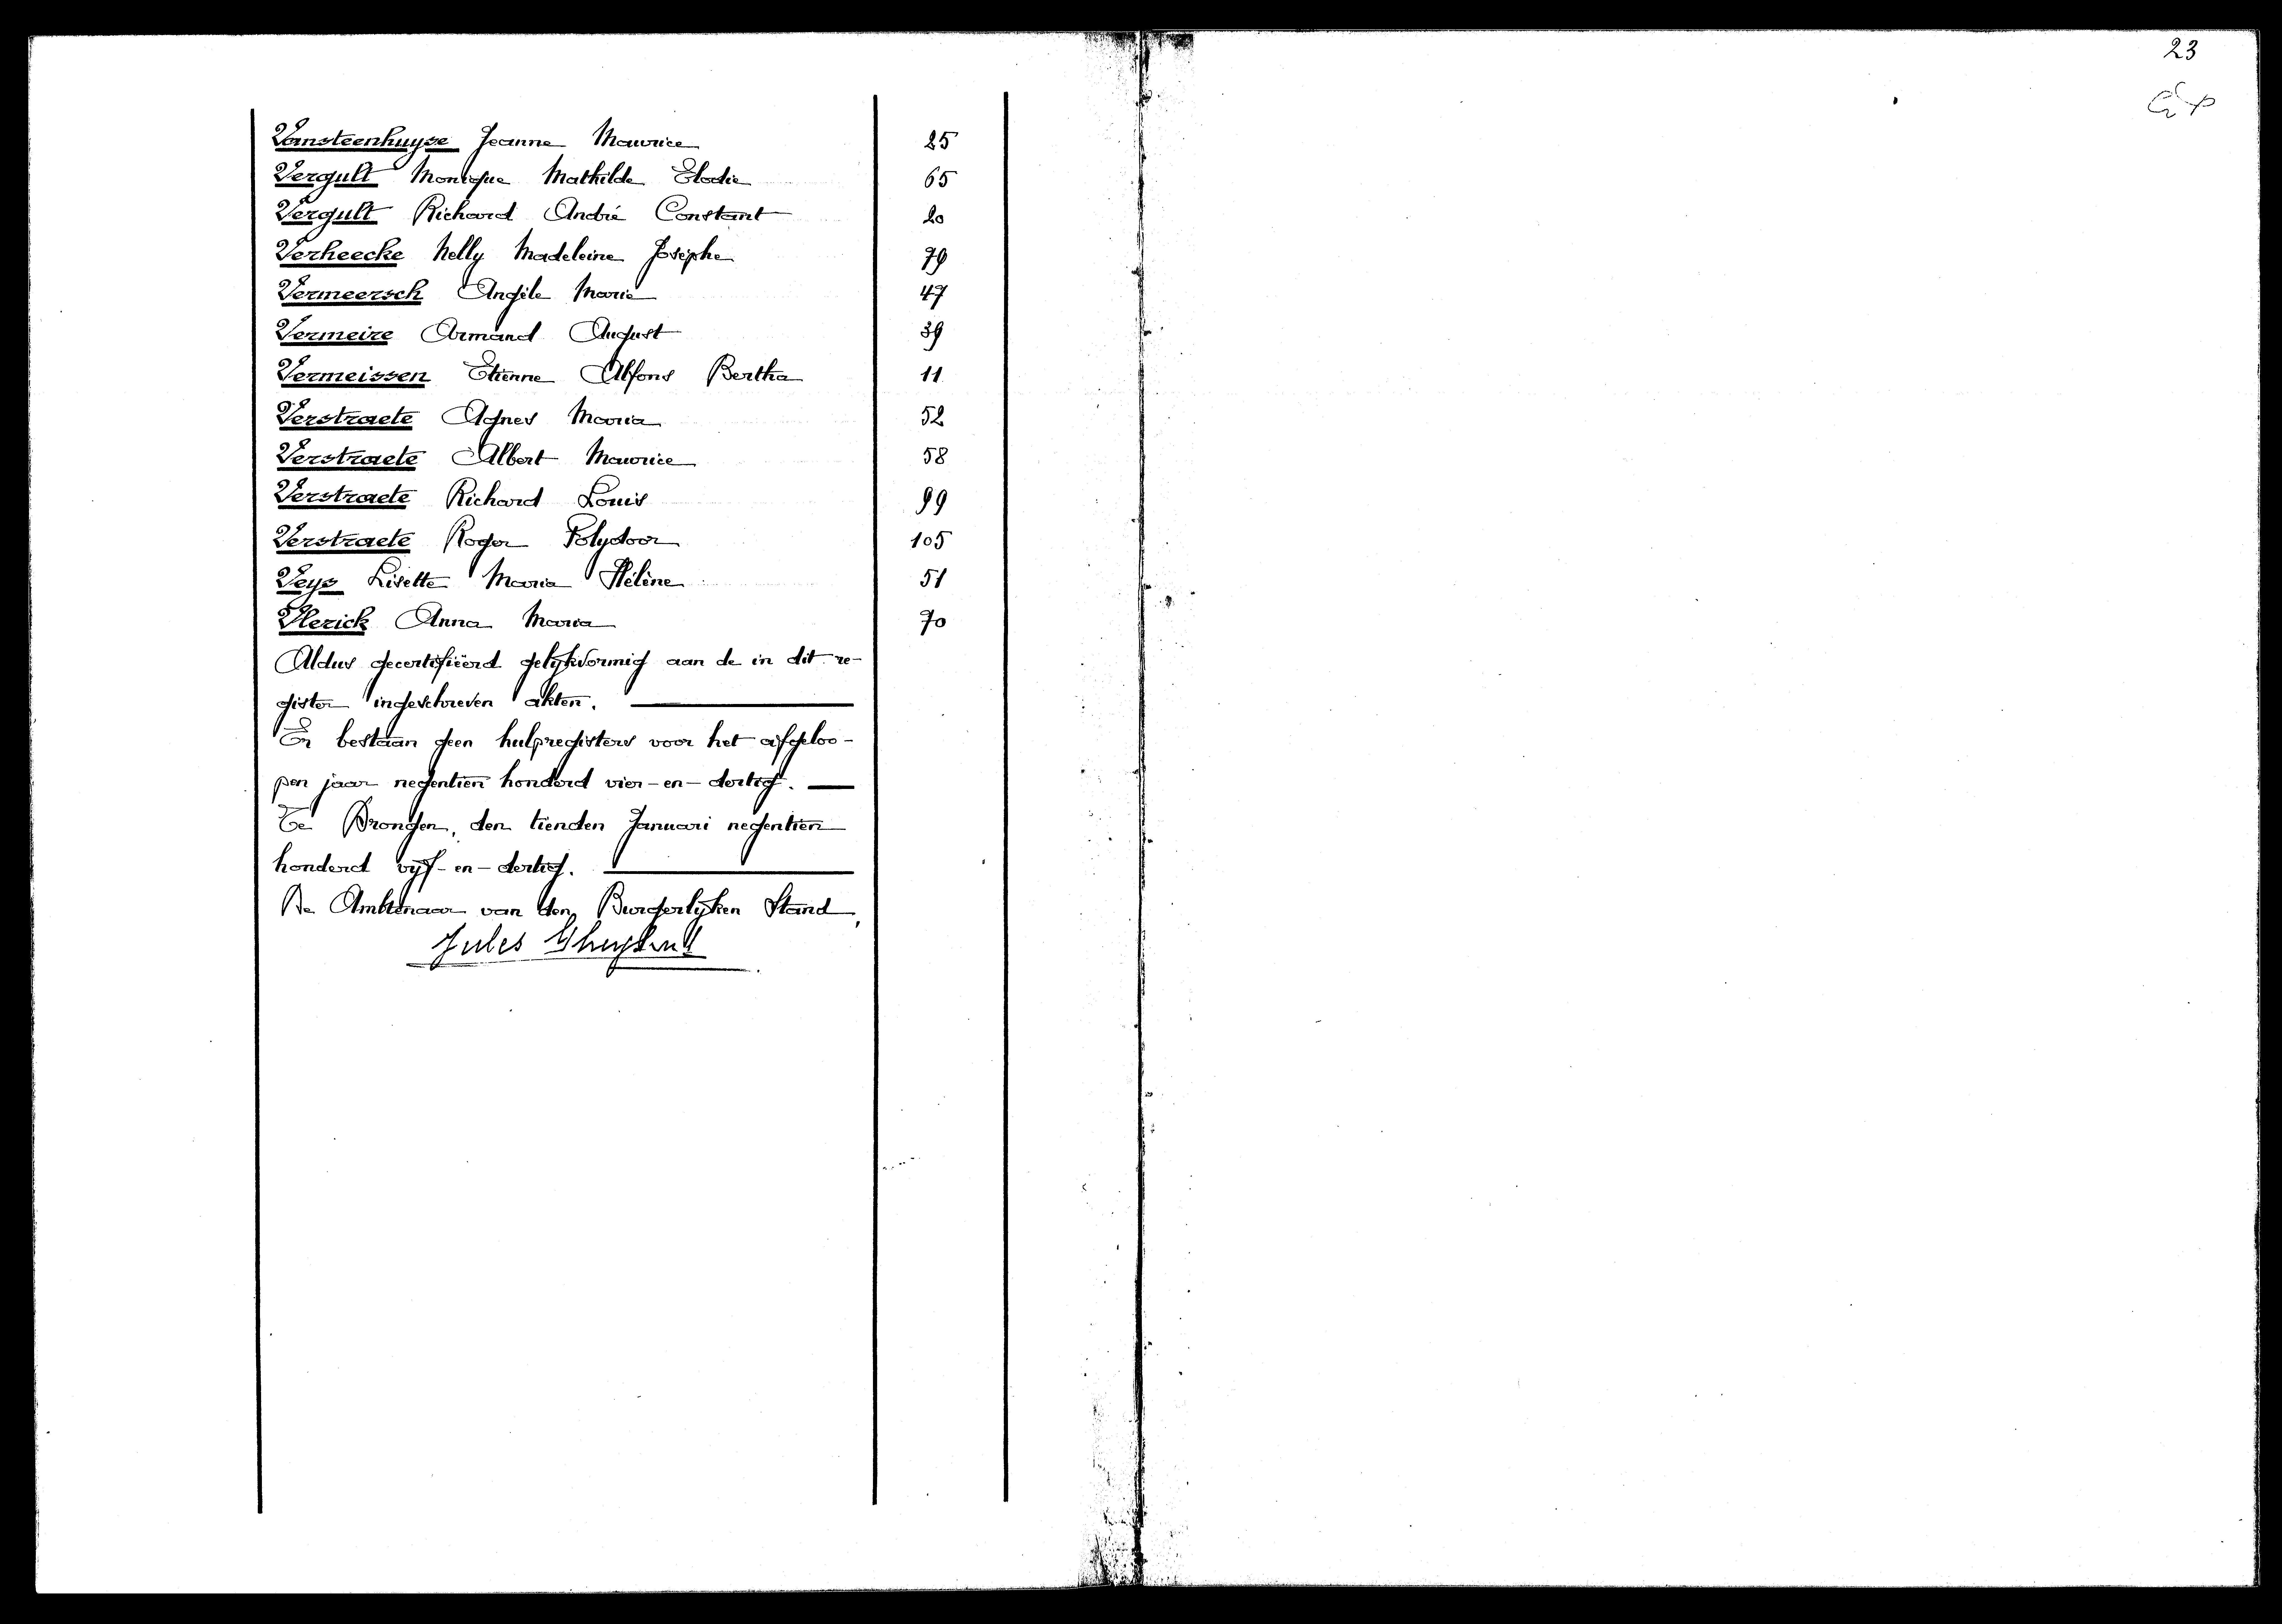 Vansteenhuyse Jeanne Maurice 25
Vergult Monique Mathilde Elodie 65
Vergult Richard André Constant 20
Verheecke Nelly Madeleine Josèphe 79
Vermeersch Angèle Marie 47
Vermeire Armand August 39
Vermeissen Etienne Alfons Bertha 11
Verstraete Agnes Maria 52
Verstraete Albert Maurice 58
Verstraete Richard Louis 99
Verstraete Roger Polydoor 105
Veys Lisette Maria Hélène 51
Vlerick Anna Maria 70
Aldus gecertifiëerd gelijkvormig aan de in dit re-
gister ingeschreven akten.
Er bestaan geen hulpregisters voor het afgeloo-
pen jaar negentien honderd vier-en-dertig.
Te Drongen, den tienden Januari negentien
honderd vijf-en-dertig.
De Ambtenaar van den Burgerlijken Stand,
Jules
23